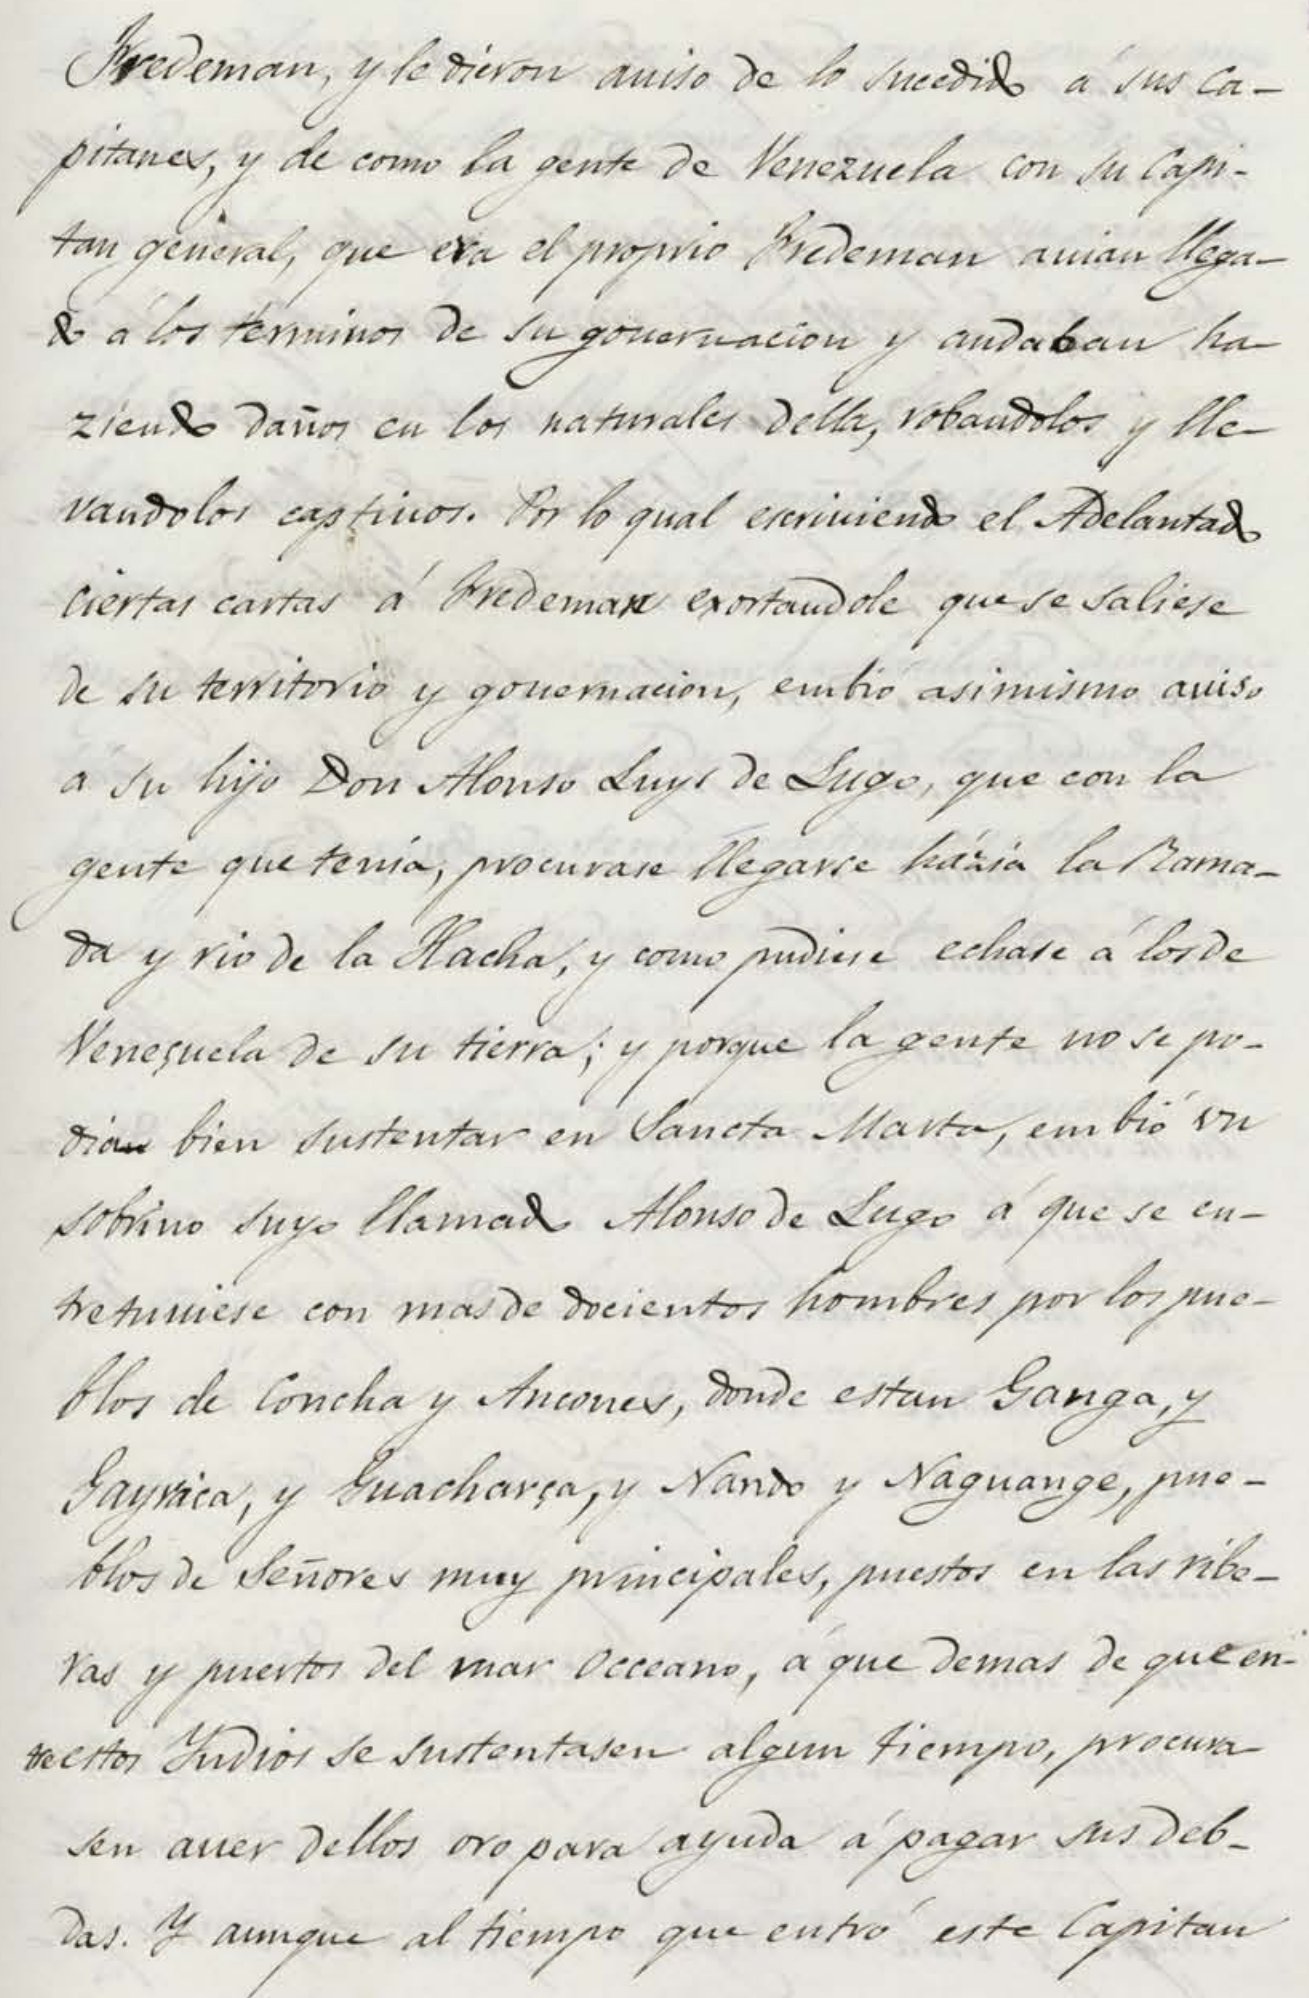 Fredeman, y le dieron auiso de lo sucedido á sus Ca-
pitanes, y de como la gente de Venezuela con su Capi-
tan general, que era el proprio Fredeman auian llega-
do á los terminos de su gouernacion y andaban ha-
ziendo daños en los naturales della, robandolos y lle-
vandolos captiuos. Por lo qual escriuiendo el Adelantado
ciertas cartas á Fredeman exortandole que se saliese
de su territorio y gouernacion, embió asimismo auiso
a su hijo Don Alonso Luys de Lugo, que con la
gente que tenia, procurase llegarse házia la Rama-
da y rio de la Hacha, y como pudiese echase á los de
Veneçuela de su tierra; y porque la gente no se po-
dian bien sustentar en Sancta Marta, embió vn
sobrino suyo llamado Alonso de Lugo á que se en-
tretuuiese con mas de docientos hombres por los pue-
blos de Concha y Ancones, donde estan Ganga, y
Gayraca, y Guacharça, y Nando y Naguange, pue-
blos de Señores muy principales, puestos en las ribe-
ras y puertos del mar Occeano, á que demas de que en-
tre estos Yndios se sustentasen algun tiempo, procura
sen auer dellos oro para ayuda á pagar sus deb-
das. Y aunque al tiempo que entró este Capitan